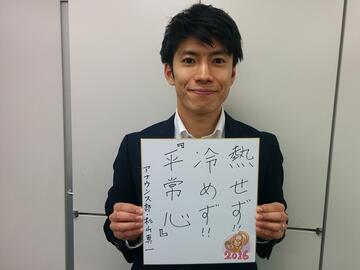 熱せず!!
冷めず!!
『平常心』
アナウンス部・松山真一
2016